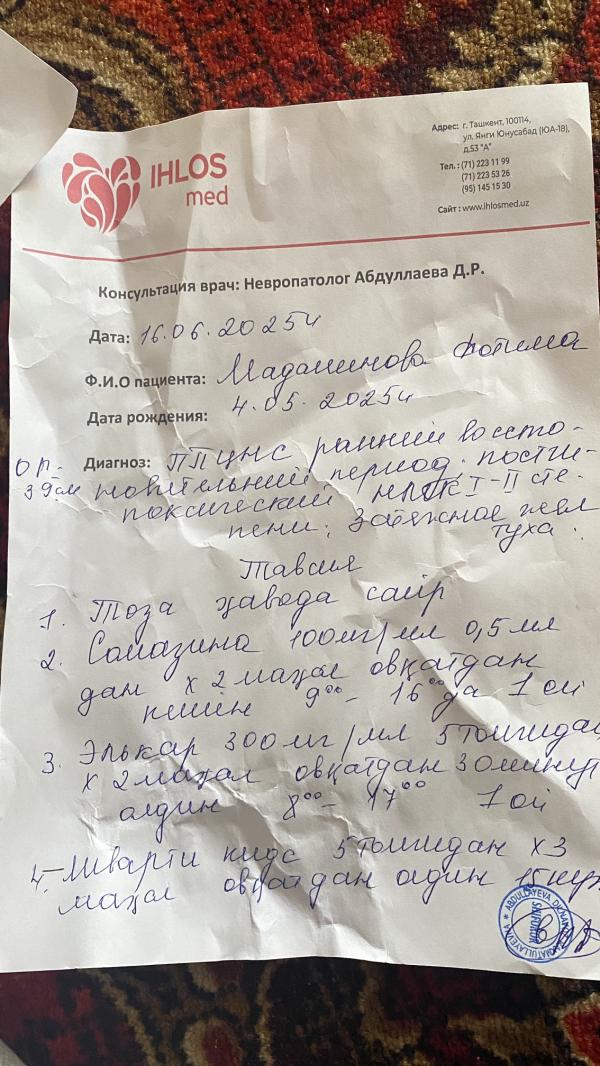 IHLOS
med
Адрес: г. Ташкент, 100114,
ул. Янги Юнусабад (ЮА-18),
д.53 "А"
Тел.: (71) 223 11 99
(71) 223 53 26
(95) 145 15 30
Сайт : www.ihlosmed.uz
Консультация врач: Невропатолог Абдуллаева Д.Р.
Дата: 16.06.2025ч
Ф.И.О пациента: Мадаминова Фотима
Дата рождения: 4.05.2025ч
Диагноз: ППЦНС ранний восста-
39см новительный период. постги-
поксический I-II сте-
пени; Затяжное жел
туха.
Тавсия
1. Тоза хавода сайр
2. Сомазина 100мг/мл 0,5мл
дан х 2махал овкатдан
кейин 9⁰⁰ - 16⁰⁰да 1 ой
3. Элькар 300мг/мл 5томчидан
х 2махал овкатдан 30минут
олдин 8⁰⁰ - 17⁰⁰ 1 ой
4. кидс 5томчидан х3
махал овкатдан олдин 15кун
ABDULLAYEVA
SHIFOKOR